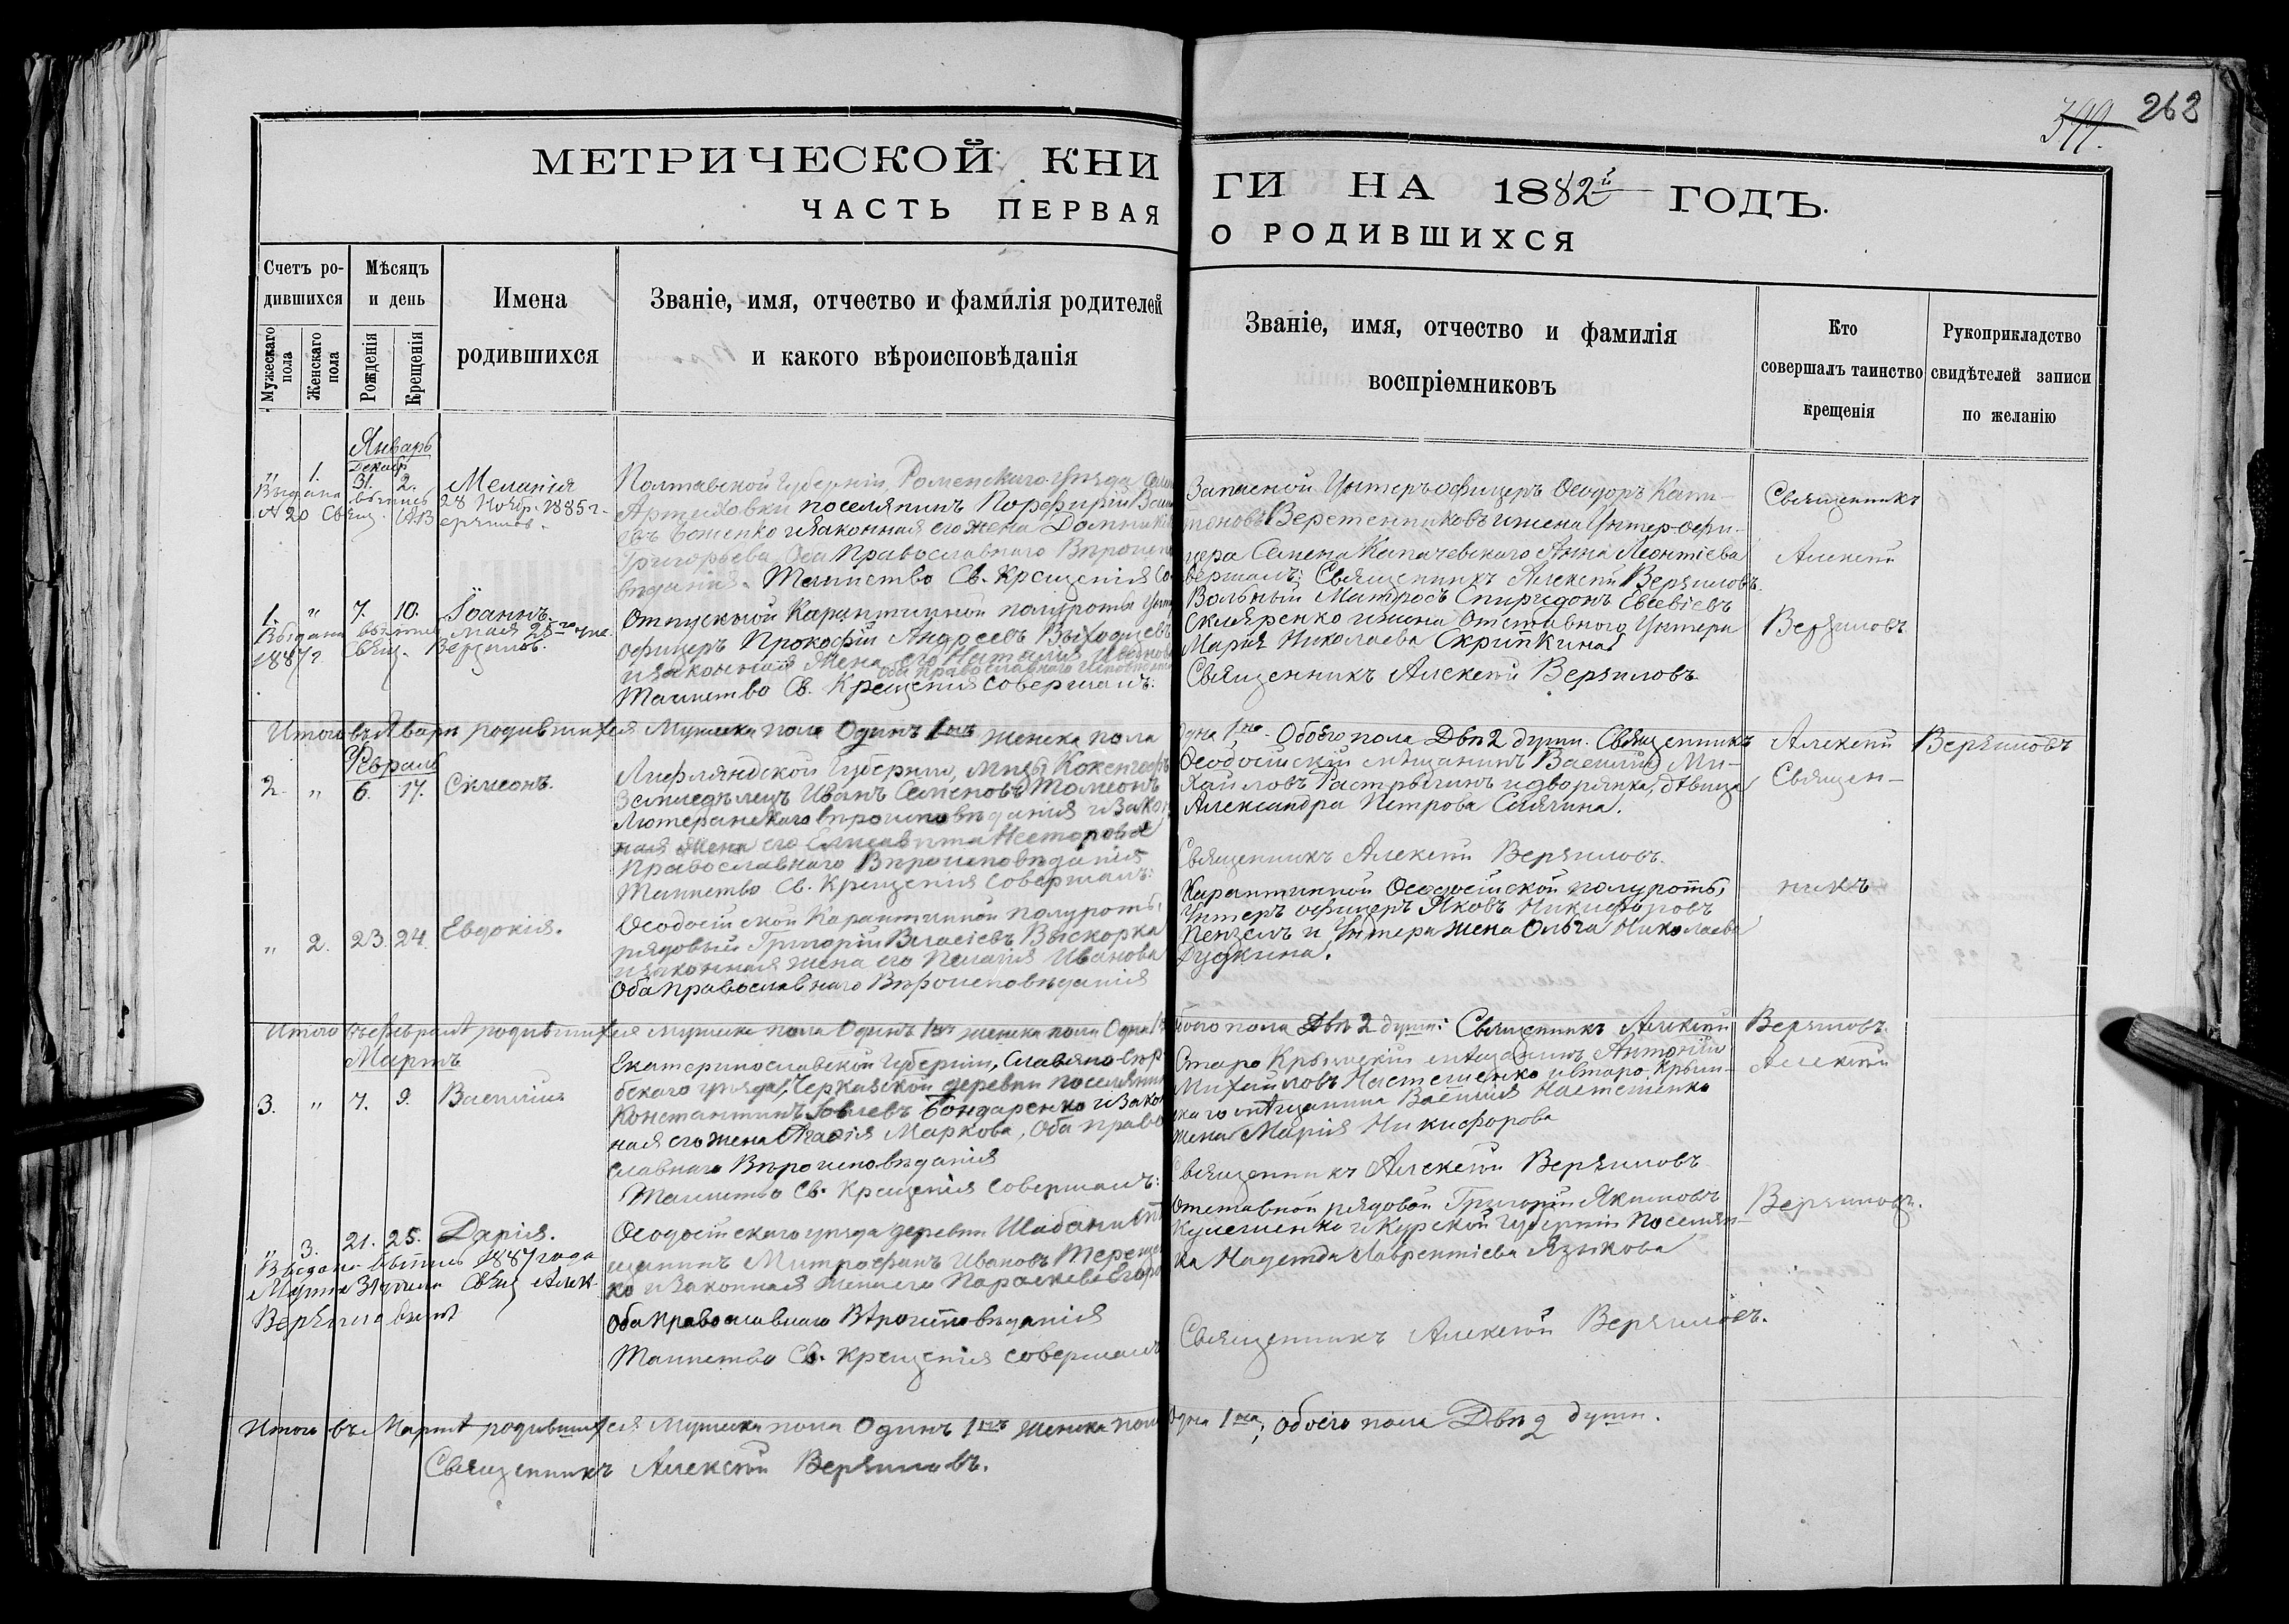 399. 262
МЕТРИЧЕСКОЙ КНИГИ НА 1882й ГОДЪ.
ЧАСТЬ ПЕРВАЯ О РОДИВШИХСЯ
Счетъ родившихся
Мужескаго пола
Женскаго пола
Мѣсяцъ и день
Рожденія
Крещенія
Имена
родившихся
Званіе, имя, отчество и фамилія родителей
и какого вѣроисповѣданія
Званіе, имя, отчество и фамилія
воспріемниковъ
Кто
совершалъ таинство
крещенія
Рукоприкладство
свидѣтелей записи
по желанію
Январь
Декабр
" 1. 31. 2. Меланія
Выдана выпись 28 Ноябр. 1885 г.
№ 20 Свящ.
Полтавской Губерніи, Роменскаго Уѣзда
Артеховки поселянинъ Порфирій
и законная его жена Домникія
Григорьева, Оба Православнаго Вѣроиспо
вѣданія. Таинство Св. Крещенія Со
Запасной Унтеръ офицеръ Ѳеодоръ Капи-
тоновъ Веретенниковъ и жена Унтер-офи-
цера Семена Капачевскаго Анна Леонтіева
вершалъ: Священникъ Алексій Веряиловъ
Священникъ
Алексій
Веряиловъ
1. " 7. 10. Іоаннъ.
Выдана выпись мая 25го дня
1887 г. Свящ. Веряиловъ.
Отпускной Карантинной полуроты Унт
офицеръ Прокофій Андреевъ Выходцевъ
и законная жена его Наталія Иванова
оба православнаго исповѣданія
Таинство Св. Крещенія совершалъ:
Вольный Матросъ Спиридонъ Евсевіевъ
Скляренко и жена Отставного Унтера
Марія Николаева Скрипкина
Священникъ Алексій Веряиловъ
Итого въ Январѣ родившихся Мужеска пола Одинъ 1нъ женска пола
дна 1на. Обоего пола Двѣ 2 души. Священникъ Алексій Веряиловъ
Февраль
2. " 6. 17. Симеонъ.
Лифляндской Губерніи, мызы Кокенгофъ
Земледѣлецъ Иванъ Семеновъ Томсонъ
Лютеранскаго вѣроисповѣданія и Закон
ная жена его Елисавета Несторова
Православнаго Вѣроисповѣданія
Таинство Св. Крещенія совершалъ:
Ѳеодосійскій мѣщанинъ Василій Ми-
хайловъ Растрыгинъ и дворянка, дѣвица
Александра Петрова Силячина.
Священникъ Алексій Веряиловъ.
Священ-
никъ
" 2. 23. 24. Евдокія.
Ѳеодосійской Карантинной полуроты,
рядовый Григорій Власіевъ Выскорка
и законная жена его Пелагія Иванова
Оба православнаго Вѣроисповѣданія
Карантинной Ѳеодосійской полуроты,
Унтеръ офицеръ Яковъ Никифоровъ
Пензелъ и Унтера жена Ольга Николаева
Дудкина.
Итого въ Февралѣ родившихся мужеска пола Одинъ 1нъ женска пола Одна 1
боего пола Двѣ 2 души: Священникъ Алексій Веряиловъ.
Мартъ
3. " 7. 9. Василій
Екатеринославской Губерніи, Славяно-сер
бскаго уѣзда, Черкаской деревни поселянин
Константинъ Бондаренко и Закон
ная его жена Агафія Маркова, Оба право
славнаго Вѣроисповѣданія
Таинство Св. Крещенія совершалъ:
Старо Крымскій мѣщанинъ Антоній
Михайловъ Настешенко и Старо Крым-
скаго мѣщанина Василія Настешенко
жена Марія Никифорова
Священникъ Алексій Веряиловъ
Алексій
Веряиловъ.
" 3. 21. 25. Дарія.
Выдана выпись 1887 года
Марта 31 числа Свящ. Алек.
Веряиловымъ
Ѳеодосійскаго уѣзда деревни Шабани
щанинъ Митрофанъ Ивановъ Терещен
ко и Законная жена его Параскева Егоро
Оба православнаго Вѣроисповѣданія
Таинство Св. Крещенія совершалъ
Отставной рядовой Григорій Якимовъ
Кулешенко и Курской Губерніи поселян-
ка Надежда Лаврентіева Языкова
Священникъ Алексій Веряиловъ.
Итого въ Мартѣ родившихся мужеска пола Одинъ 1нъ женска пол
Одна 1на, обоего пола Двѣ 2 души.
Священникъ Алексій Веряиловъ.